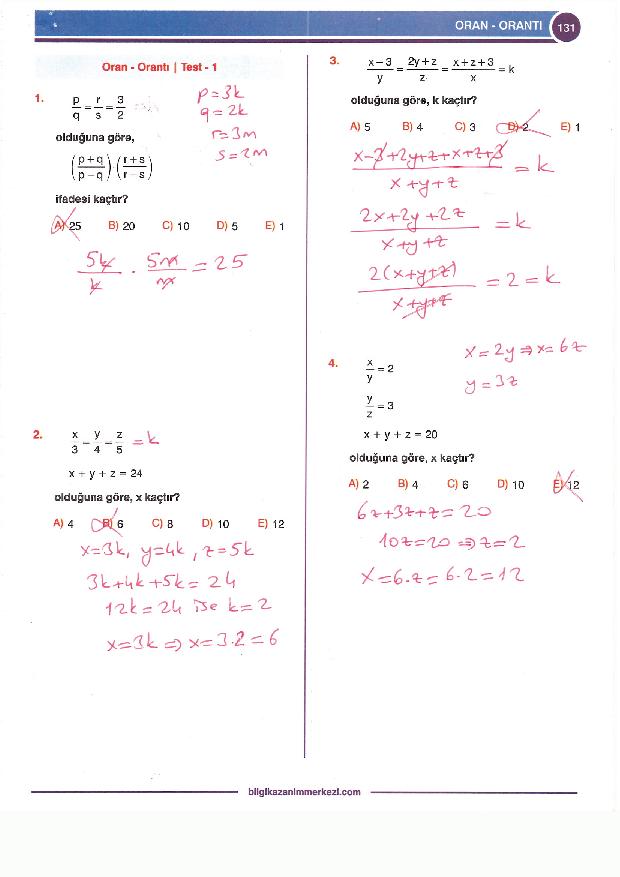 ORAN - ORANTI 131
Oran - Orantı | Test - 1
1. p/q = r/s = 3/2
p=3k
q=2k
r=3m
s=2m
olduğuna göre,
((p+q)/(p-q)) . ((r+s)/(r-s))
ifadesi kaçtır?
A) 25 B) 20 C) 10 D) 5 E) 1
5k/k . 5m/m = 25
2. x/3 = y/4 = z/5 = k
x + y + z = 24
olduğuna göre, x kaçtır?
A) 4 B) 6 C) 8 D) 10 E) 12
x=3k, y=4k, z=5k
3k+4k+5k=24
12k=24 ise k=2
x=3k ⇒ x=3.2=6
3. (x-3)/y = (2y+z)/z = (x+z+3)/x = k
olduğuna göre, k kaçtır?
A) 5 B) 4 C) 3 D) 2 E) 1
(x-3+2y+z+x+z+3)/(x+y+z) = k
(2x+2y+2z)/(x+y+z) = k
2(x+y+z)/(x+y+z) = 2 = k
4. x/y = 2
x=2y ⇒ x=6z
y=3z
y/z = 3
x + y + z = 20
olduğuna göre, x kaçtır?
A) 2 B) 4 C) 6 D) 10 E) 12
6z+3z+z=20
10z=20 ⇒ z=2
x=6.z=6.2=12
bilgikazanimmerkezi.com